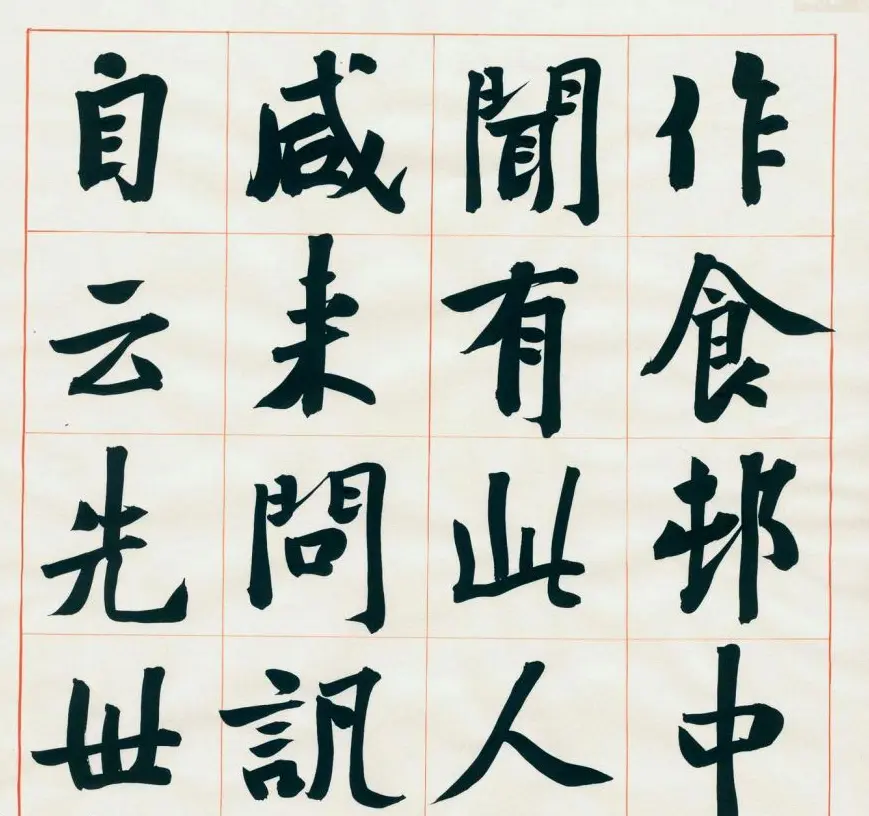 作食邨中
聞有此人
咸来問訊
自云先世